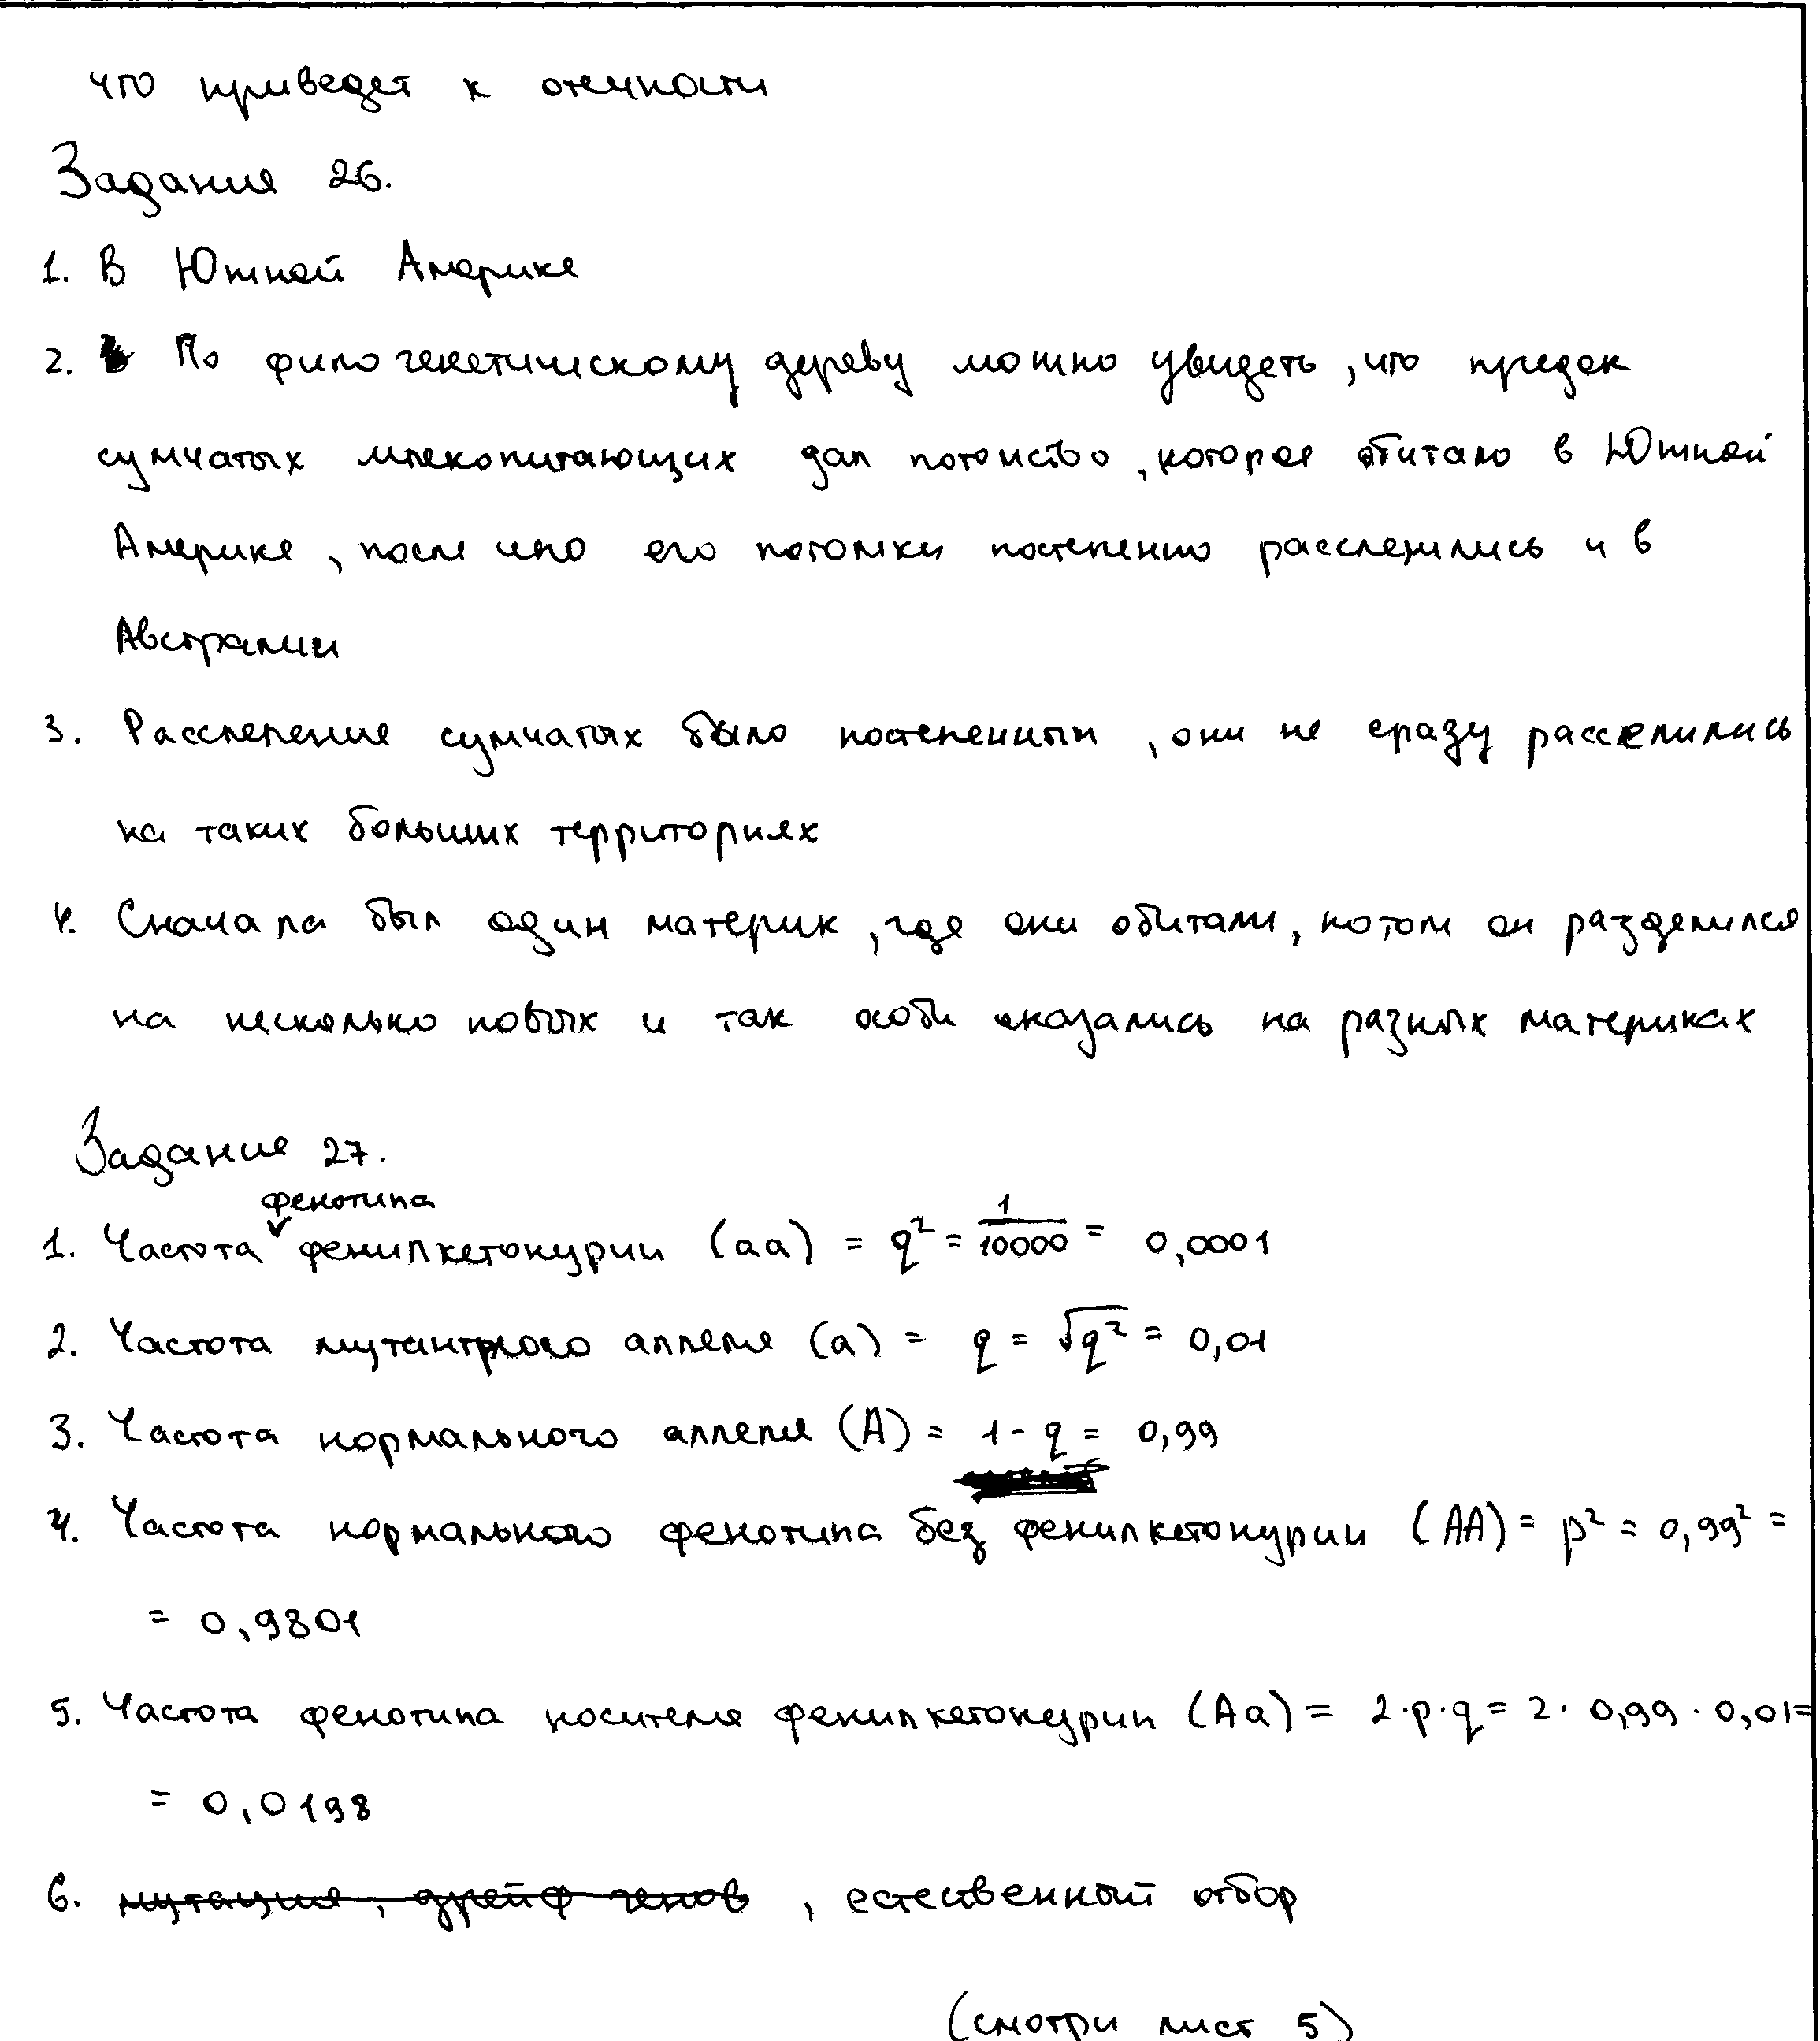 что приведет к отечности
Задания 26.
1. В Южной Америке
2. По филогенетическому дереву можно увидеть, что предок
сумчатых млекопитающих дал потомство, которое обитало в Южной
Америке, после чего его потомки постепенно расселились и в
Австралии
3. Расселение сумчатых было постепенным, они не сразу расселились
на таких больших территориях
4. Сначала был один материк, где они обитали, потом он разделился
на несколько новых и так особи оказались на разных материках
Задание 27.
фенотипа
1. Частота фенилкетонурии (aa) = q² = 1/10000 = 0,0001
2. Частота мутантного аллеля (a) = q = √q² = 0,01
3. Частота нормального аллеля (A) = 1 - q = 0,99
4. Частота нормального фенотипа без фенилкетонурии (AA) = p² = 0,99² =
= 0,9801
5. Частота фенотипа носителя фенилкетонурии (Aa) = 2·p·q = 2·0,99·0,01=
= 0,0198
6. мутация, дрейф генов, естественный отбор
(смотри лист 5)